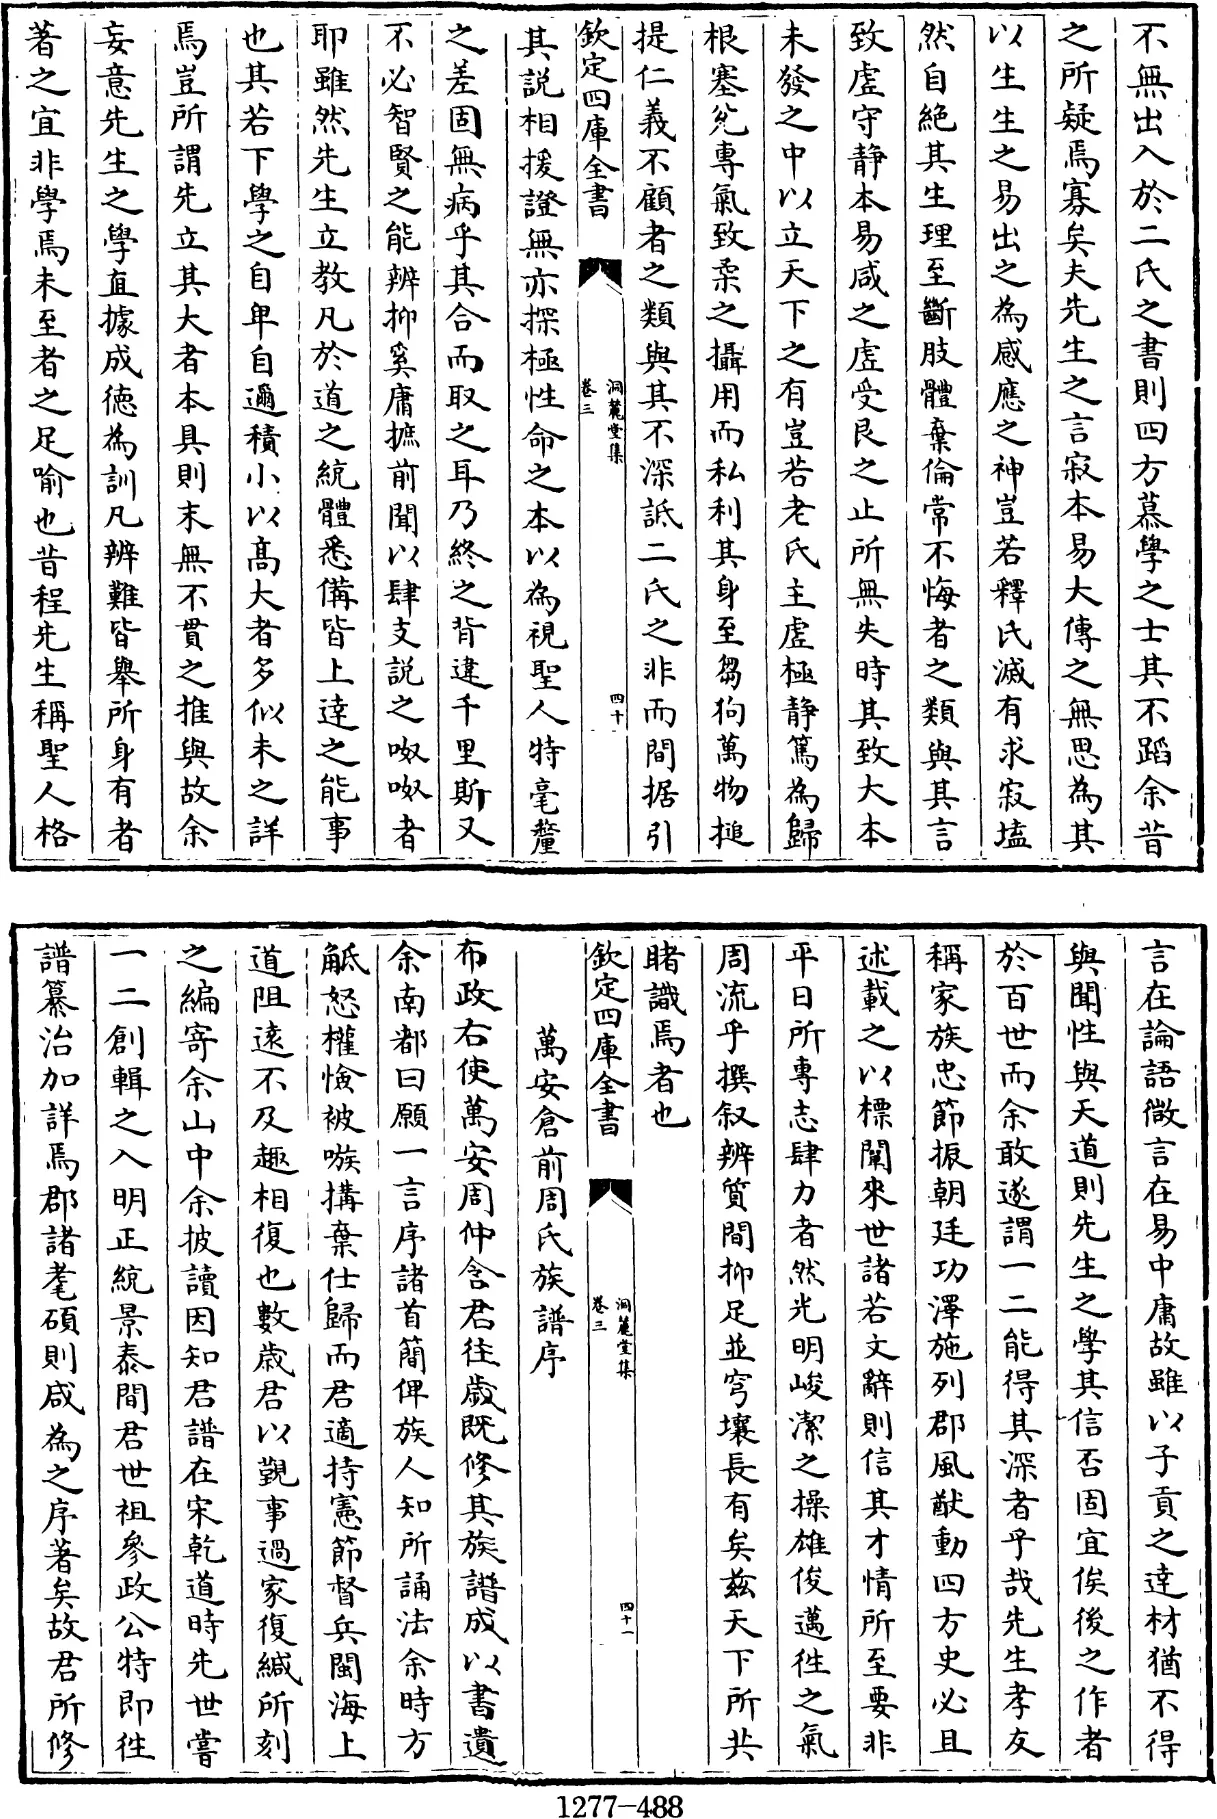 不無出入於二氏之書則四方慕學之士其不蹈余昔
之所疑焉寡矣夫先生之言寂本易大傳之無思為其
以生生之易出之為感應之神豈若釋氏滅有求寂塩
然自絶其生理至斷肢體棄倫常不悔者之類與其言
致虚守静本易咸之虚受艮之止所無失時其致大本
未發之中以立天下之有豈若老氏主虚極静篤為歸
根塞兊專氣致柔之攝用而私利其身至芻狗萬物搥
提仁義不顧者之類與其不深詆二氏之非而間据引
欽定四庫全書
洞麓堂集
卷三
四十
其説相援證無亦探極性命之本以為視聖人特毫釐
之差固無病乎其合而取之耳乃終之背違千里斯又
不必智賢之能辨抑奚庸摭前聞以肆支説之呶呶者
耶雖然先生立教凡於道之統體悉備皆上達之能事
也其若下學之自卑自邇積小以髙大者多似未之詳
焉豈所謂先立其大者本具則末無不貫之推與故余
妄意先生之學直據成徳為訓凡辨難皆舉所身有者
著之宜非學焉未至者之足喻也昔程先生稱聖人格
言在論語微言在易中庸故雖以子貢之達材猶不得
與聞性與天道則先生之學其信否固宜俟後之作者
於百世而余敢遂謂一二能得其深者乎哉先生孝友
稱家族忠節振朝廷功澤施列郡風猷動四方史必且
述載之以標闡來世諸若文辭則信其才情所至要非
平日所專志肆力者然光明峻潔之操雄俊邁徃之氣
周流乎撰叙辨質間抑足並穹壤長有矣兹天下所共
睹識焉者也
欽定四庫全書
洞麓堂集
卷三
四十一
萬安倉前周氏族譜序
布政右使萬安周仲含君徃歲既修其族譜成以書遺
余南都曰願一言序諸首簡俾族人知所誦法余時方
觝怒權憸被嗾搆棄仕歸而君適持憲節督兵閩海上
道阻逺不及趣相復也數歲君以覲事過家復緘所刻
之編寄余山中余披讀因知君譜在宋乾道時先世嘗
一二創輯之入明正統景泰間君世祖參政公特即徃
譜纂治加詳焉郡諸耄碩則咸為之序著矣故君所修
1277-488